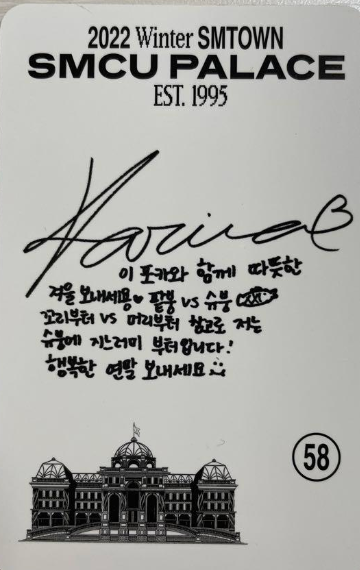 2022 Winter SMTOWN
SMCU PALACE
EST. 1995
Karina
이 포카와 함께 따뜻한
겨울 보내세용♥ 팥붕 vs 슈붕
꼬리부터 vs 머리부터 참고로 저는
슈붕에 지느러미 부터입니다!
행복한 연말 보내세요
58